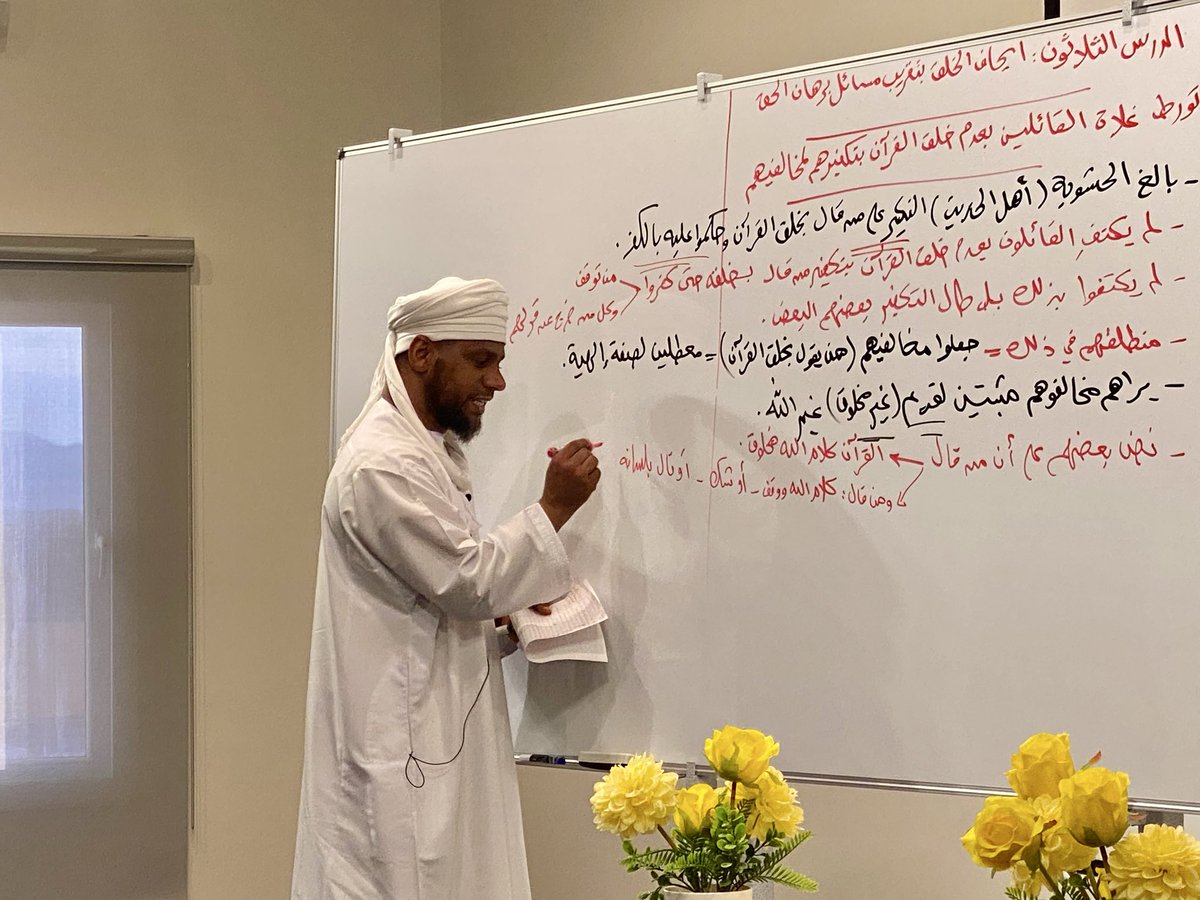 الدرس الثلاثون: إتحاف الخلق بتقريب مسائل برهان الحق
تورط غلاة القائلين بعدم خلق القرآن بتكفيرهم لمخالفيهم
- بالغ الحشوية (أهل الحديث) النكير على من قال بخلق القرآن وحكموا عليه بالكفر.
- لم يكتفِ القائلون بعدم خلق القرآن بتكفير من قال بخلقه حتى كفروا
من توقف
وكل من خرج عن قولهم
- لم يكتفوا بذلك بل طال التكفير بعضهم البعض.
- منطلقهم في ذلك = جعلوا مخالفيهم (من يقول بخلق القرآن) = معطلين لصفة إلهية.
- يراهم مخالفوهم مثبتين لقديم (غير مخلوق) غير الله.
- نص بعضهم على أن من قال القرآن كلام الله مخلوق.
ومن قال: كلام الله ووقف - أو شك - أو قال بلسانه